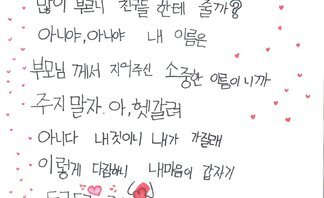 많이 부르니 친구들 한테 줄까?
아니야, 아니야 내 이름은
부모님 께서 지어주신 소중한 이름이 니까
주지 말자. 아, 헷갈려
아니다 내것이니 내가 가질래
이렇게 다짐하니 내마음이 갑자기